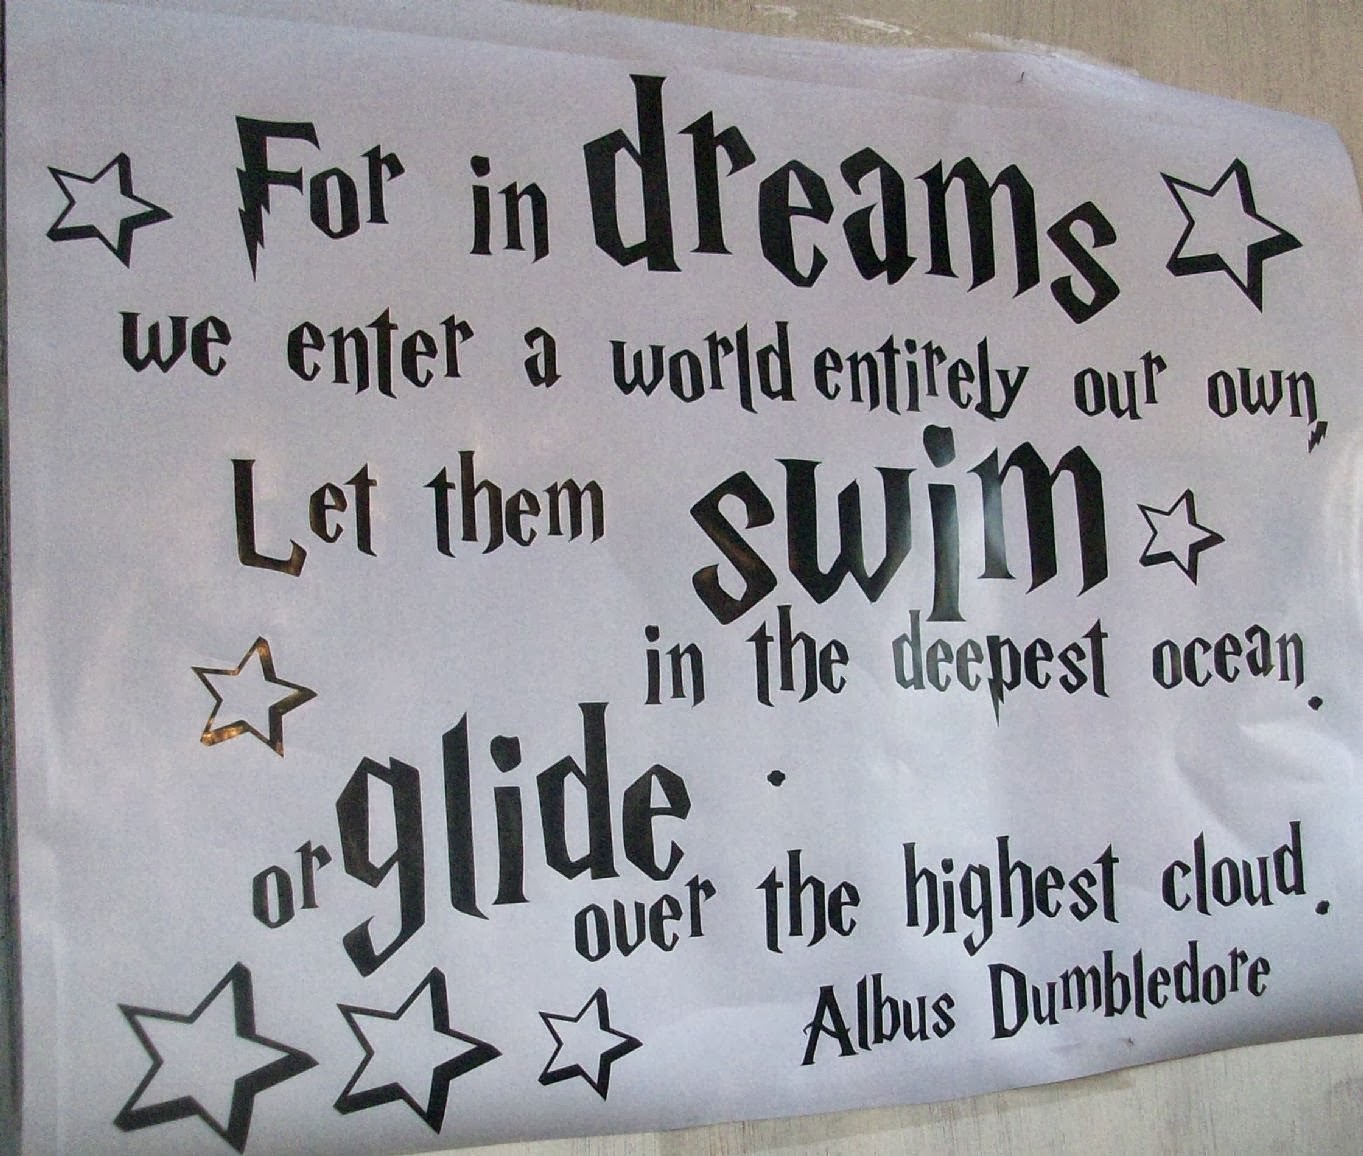 For in dreams
we enter a world entirely our own,
Let them swim
in the deepest ocean.
or glide
over the highest cloud.
Albus Dumbledore